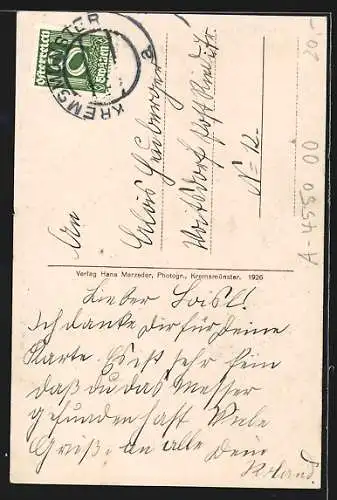 Österreich
Groschen
KREMSMÜNSTER
a
20,-
A-4550 00
An
Alois
Post
N= 12.
Verlag Hans Marzeder, Photogr., Kremsmünster. 1926
Lieber Loisl!
Ich danke Dir für Deine
Karte. Es ist sehr fein
daß du das Messer
gefunden hast. Viele
Grüße an alle Dein
Roland.